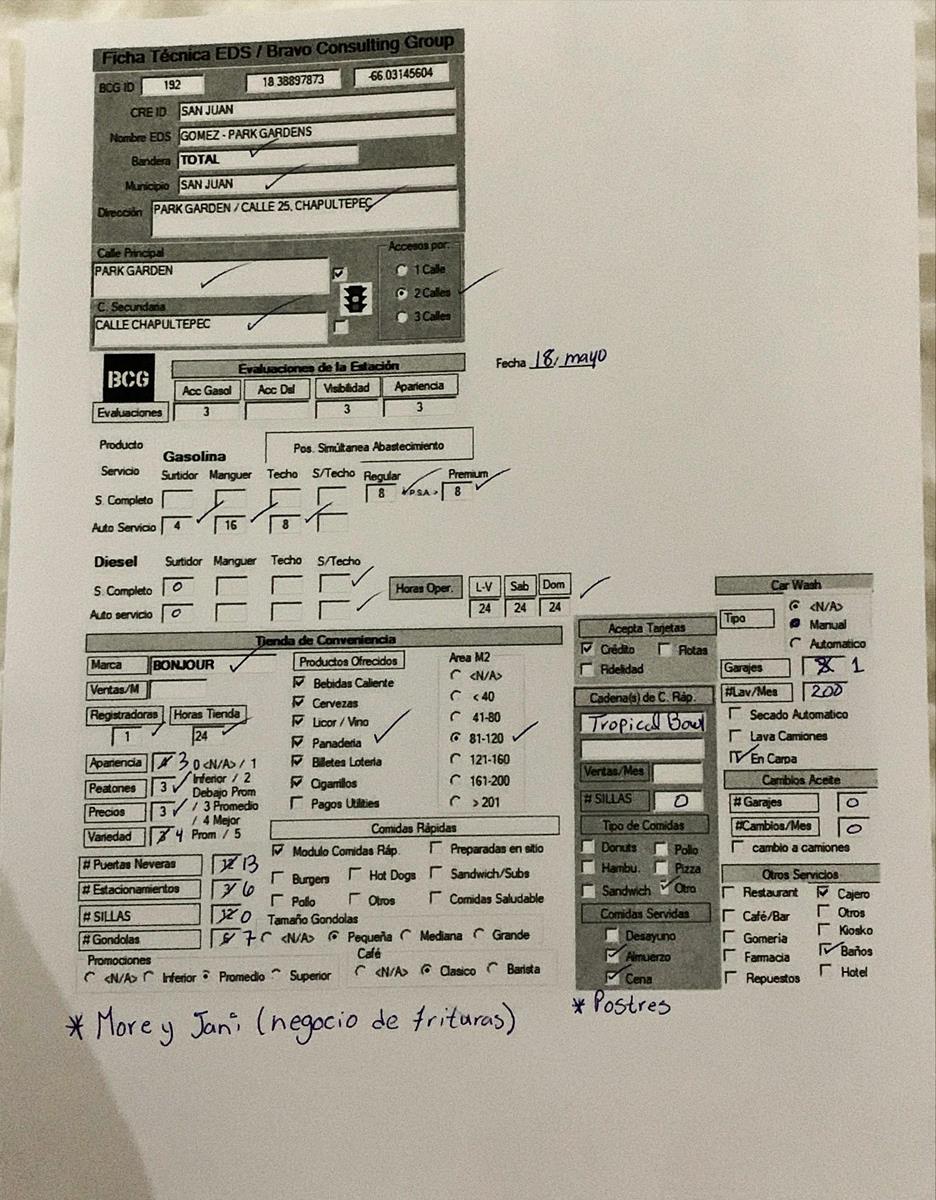 Ficha Técnica EDS / Bravo Consulting Group
BCG ID 192 18.38897873 -66.03145604
CRE ID SAN JUAN
Nombre EDS GOMEZ - PARK GARDENS
Bandera TOTAL
Municipio SAN JUAN
Dirección PARK GARDEN / CALLE 25, CHAPULTEPEC
Calle Principal
PARK GARDEN
C. Secundaria
CALLE CHAPULTEPEC
Accesos por:
1 Calle
2 Calles
3 Calles
Fecha 18/ mayo
BCG
Evaluaciones de la Estación
Acc Gasol Acc Dsl Visibilidad Apariencia
Evaluaciones 3 3 3
Producto Gasolina Pos. Simúltanea Abastecimiento
Servicio Surtidor Manguer Techo S/Techo Regular Premium
S. Completo 8 < P.S.A. > 8
Auto Servicio 4 16 8
Diesel Surtidor Manguer Techo S/Techo
S. Completo 0
Auto servicio 0
Horas Oper. L-V Sab Dom
24 24 24
Tienda de Conveniencia
Marca BONJOUR
Ventas/M
Registradoras Horas Tienda
1 24
Apariencia 3 0 <N/A> / 1
Peatones 3 Inferior / 2
Debajo Prom
Precios 3 / 3 Promedio
/ 4 Mejor
Variedad 3 4 Prom / 5
# Puertas Neveras 12 13
# Estacionamientos 6
# SILLAS 0
# Gondolas 7
Promociones
<N/A> Inferior Promedio Superior
Productos Ofrecidos
Bebidas Caliente
Cervezas
Licor / Vino
Panaderia
Billetes Loteria
Cigarrillos
Pagos Utilities
Area M2
<N/A>
< 40
41-80
81-120
121-160
161-200
> 201
Comidas Rápidas
Modulo Comidas Ráp. Preparadas en sitio
Burgers Hot Dogs Sandwich/Subs
Pollo Otros Comidas Saludable
Tamaño Gondolas
<N/A> Pequeña Mediana Grande
Café
<N/A> Clasico Barista
Acepta Tarjetas
Crédito Flotas
Fidelidad
Cadena(s) de C. Ráp.
Tropical Bowl
Ventas/Mes
# SILLAS 0
Tipo de Comidas
Donuts Pollo
Hambu. Pizza
Sandwich Otro
Comidas Servidas
Desayuno
Almuerzo
Cena
Car Wash
Tipo <N/A>
Manual
Automatico
Garajes 1
#Lav/Mes 200
Secado Automatico
Lava Camiones
En Carpa
Cambios Aceite
# Garajes 0
#Cambios/Mes 0
cambio a camiones
Otros Servicios
Restaurant Cajero
Café/Bar Otros
Gomeria Kiosko
Farmacia Baños
Repuestos Hotel
* More y Jani (negocio de frituras)
* Postres